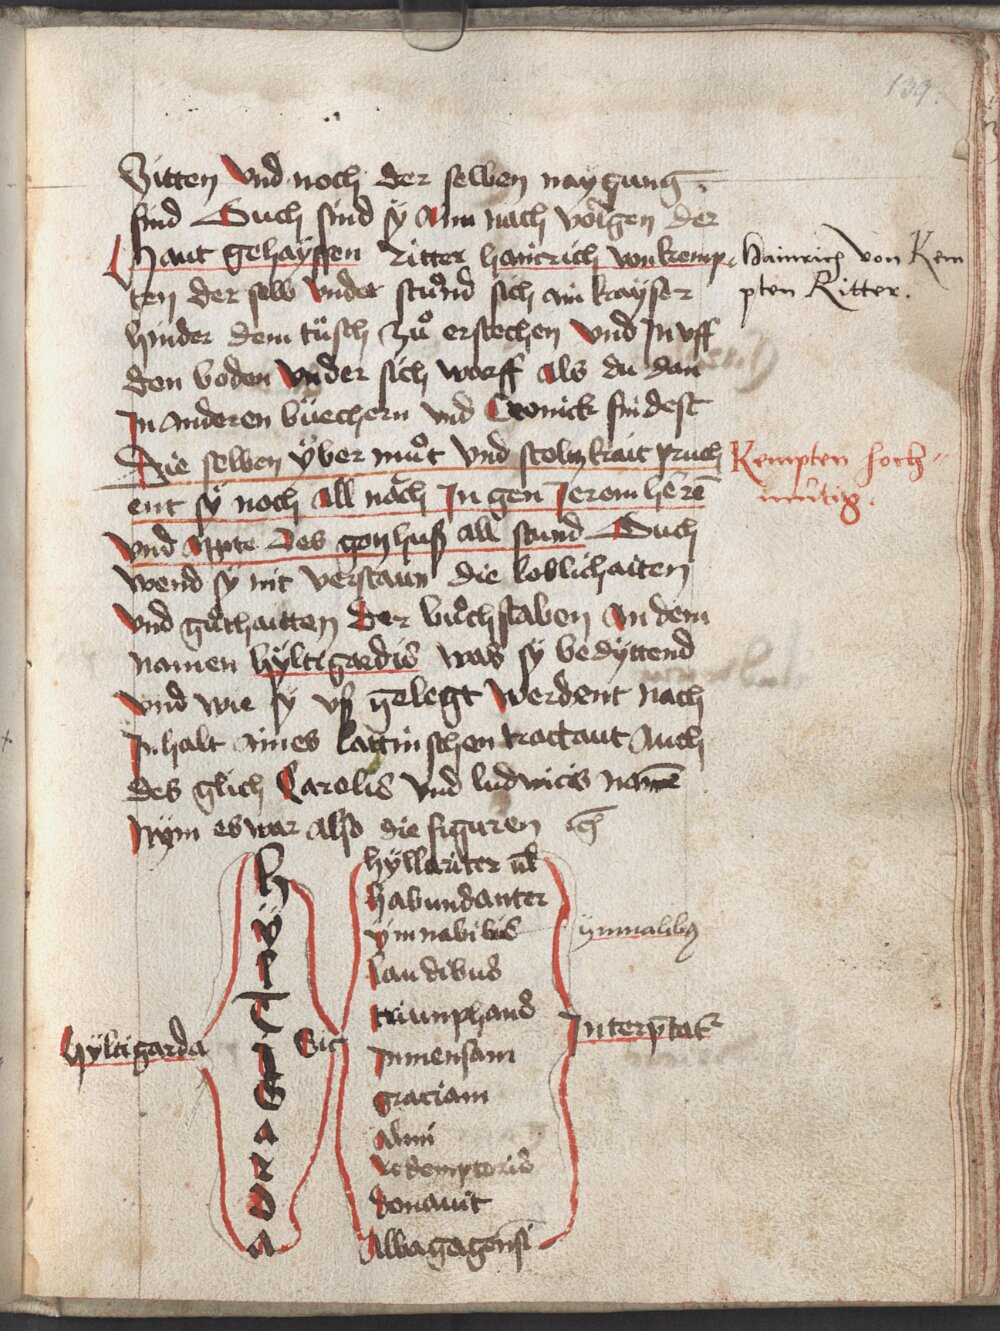 139.
Sitten Vnd noch der selben naygung
sind Ouch sind sÿ Ann nach volgen der
haut gehayssen Ritter hainrich von kemp
ten der selb Vnder stuͦnd sich ain kayser
hinder dem tüsch zuͦ erstechen Vnd In vff
den boden Vnder sich warff als du dan
In anderen buͤechern vnd Cronick findest
Die selben ÿber muͦt vnd stoltzkait pruch
ent sÿ noch all nach In gen Jerem heren̄
Vnd Appte Des gotzhuß all stund Ouch
wend sÿ nit verstaun die loblichaiten
Vnd guͦthaitten Der buͦchstaben An dem
namen hÿltigardis was sÿ bedÿttend
Vnd wie sÿ vß gelegt Werdent nach
Inhalt aines lattinschen tractaut Auch
des glich Carolis Vnd ludwicis namē
Nÿm es war Also die figuren
Hainrich von Kem
pten Ritter.
Kempten hoch-
mütig.
Hÿltigarda
H
ÿ
l
T
I
G
A
R
D
A
Sic
hÿllariter vl̄
habundanter
ÿmnabilibus
laudibus
triumphand
Inmensam
graciam
a
redemptoris
donauit
Albagagensi
ÿmnalibus
Interp̄tat